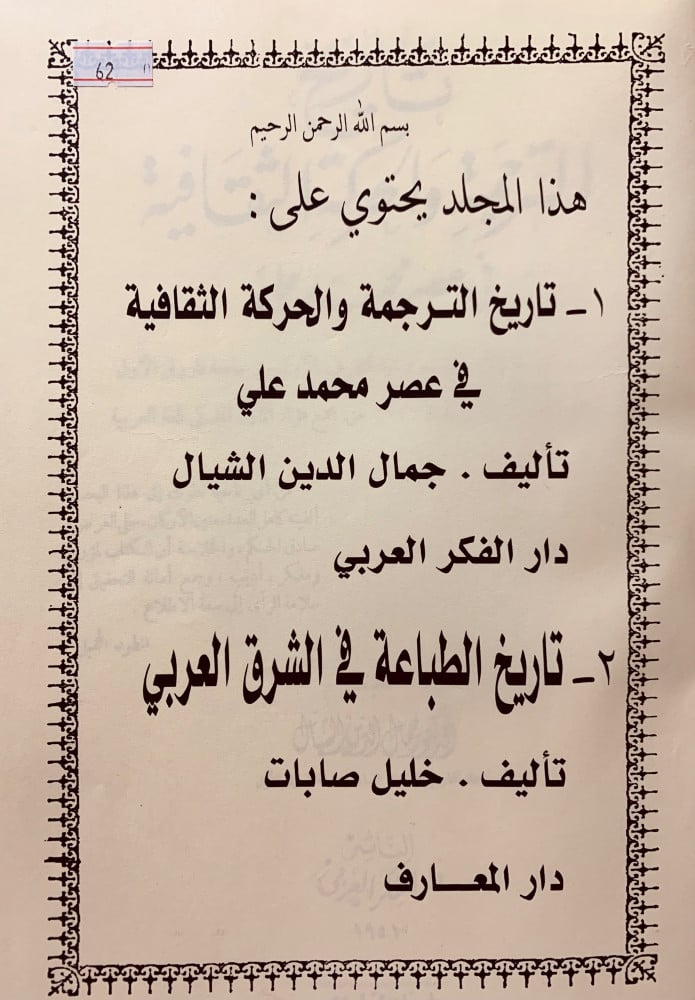 62
بسم الله الرحمن الرحيم
هذا المجلد يحتوي على :
١ ـ تاريخ الترجمة والحركة الثقافية
في عصر محمد علي
تأليف . جمال الدين الشيال
دار الفكر العربي
٢ ـ تاريخ الطباعة في الشرق العربي
تأليف . خليل صابات
دار المعــارف